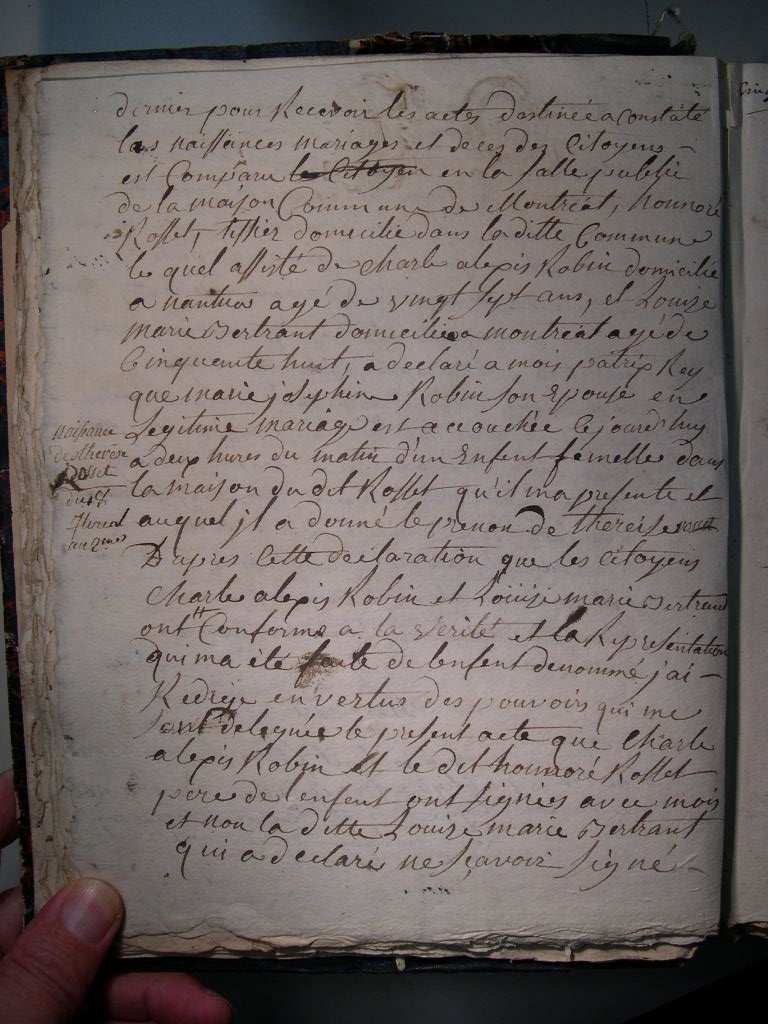 dernier pour Recevoir les actes destinée a Constaté
las naissances mariages et deces des Citoyens -
est Comparu le Citoyen en la salle public
de la maison Commune de Montréal, honnoré
Rosset, tissier domicilié dans la ditte Commune
le quel assisté de Charle alexis Robin domicilié
a nantua agé de vingt sept ans, et Louize
marie Bertrant domiciliée a montréal agé de
Cinquente huit, a declaré a mois patrix Rey
que marie josephine Robin son Epouse en
Legitime mariage est accouchée Cejourdhuy
a deux hures du matin d'un Enfent femelle dans
la maison du dit Rosset qu'il ma presenté et
auquel jl a donné le prenon de thereise
D'apres Cette declaration que les Citoyens
Charle alexis Robin et Louize marie Bertrand
ontt Conforme a la verité et la Représentation
qui ma été faite de lenfent denommé j'ai -
Redrije en vertus des pouvoirs qui me
sont deleguée le present acte que Charle
alexis Robin et le dit honnoré Rosset
pere de lenfent ont signiés avec mois
et non la ditte Louize marie Bertrant
qui a declaré ne sçavoir signé -
naissance
de therèse
Rosset
du 18
floreal
an 2me